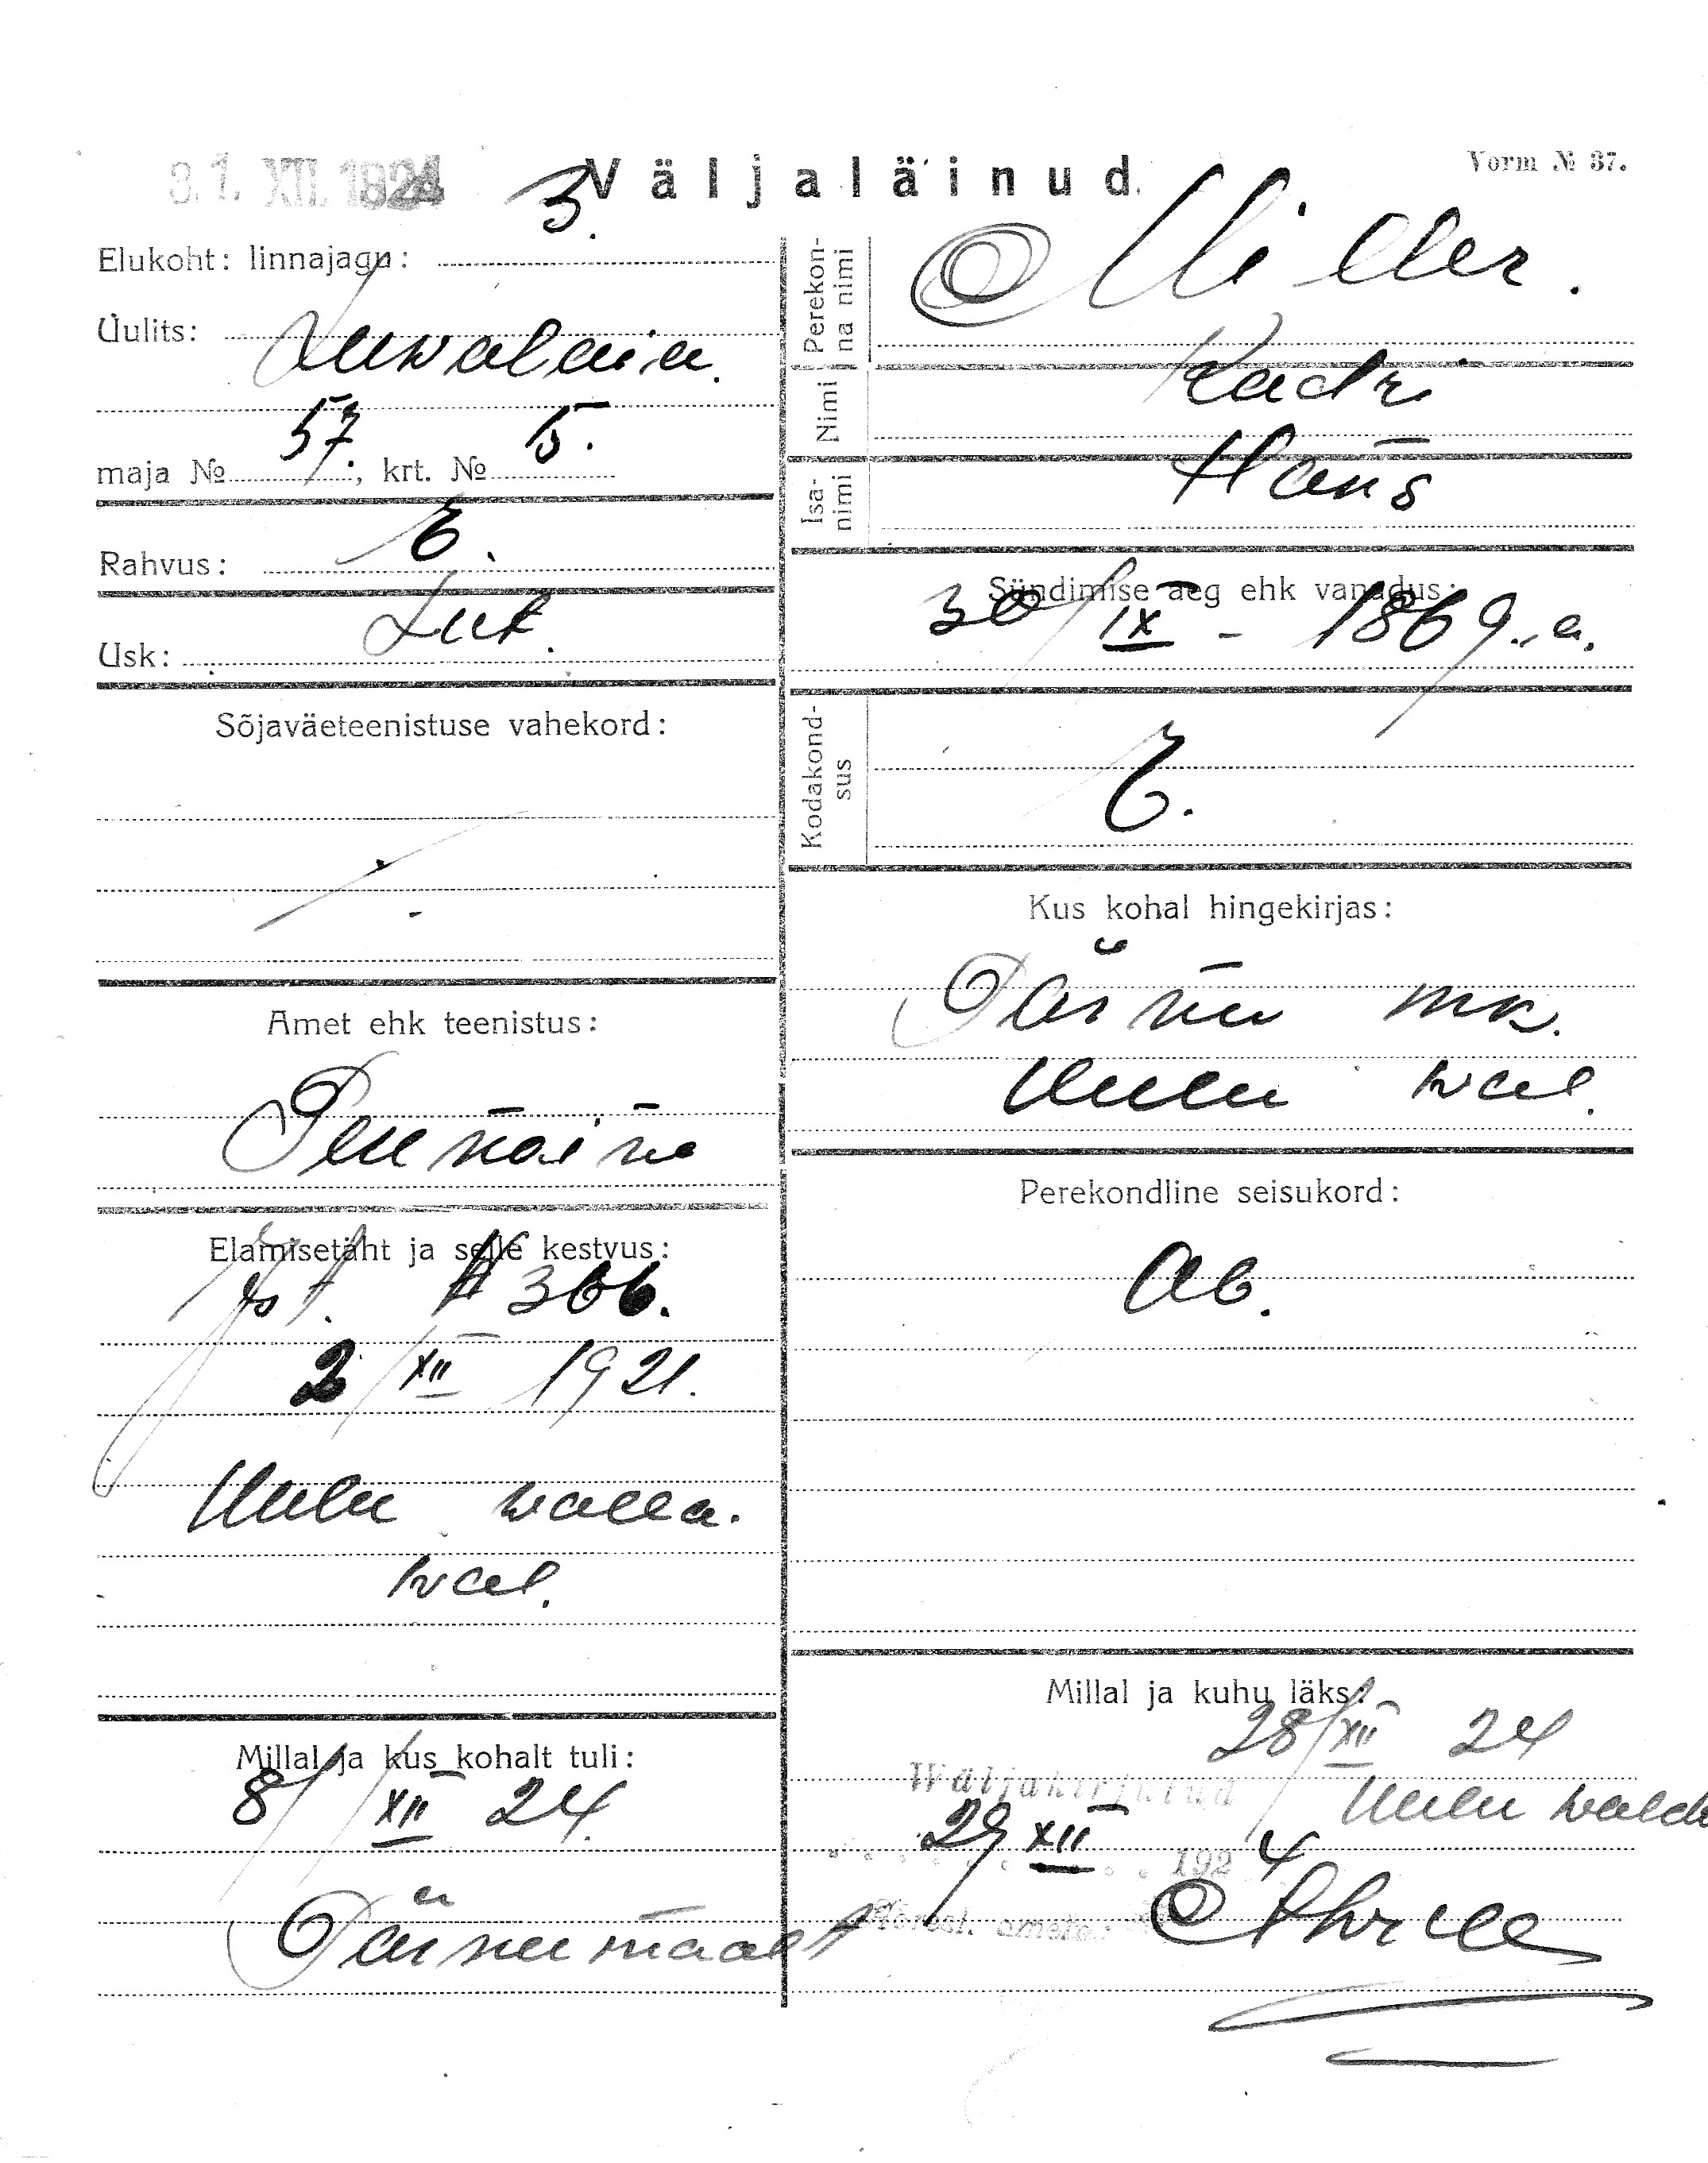 31. XII. 1924
Väljaläinud.
Vorm № 37.
Elukoht: linnajagu: 3.
Uulits:
maja № 57., krt. № 5.
Rahvus: E.
Usk: Lut.
Sõjaväeteenistuse vahekord:
Amet ehk teenistus:
Põllnaine
Elamisetäht ja selle kestvus:
№ 366.
2/XII 1921.
Uulu walla.
wal.
Millal ja kus kohalt tuli:
8/XII 24.
Pärnumaalt
Perekonna nimi
Miller.
Nimi
Kadri
Isanimi
Hans
Sündimise aeg ehk vanadus:
30/IX - 1869. a.
Kodakondsus
E.
Kus kohal hingekirjas:
Pärnu mk.
Uulu wal.
Perekondline seisukord:
Ab.
Millal ja kuhu läks:
28/XII 24
Uulu walda
Wäljakirjutud
29 XII 1924